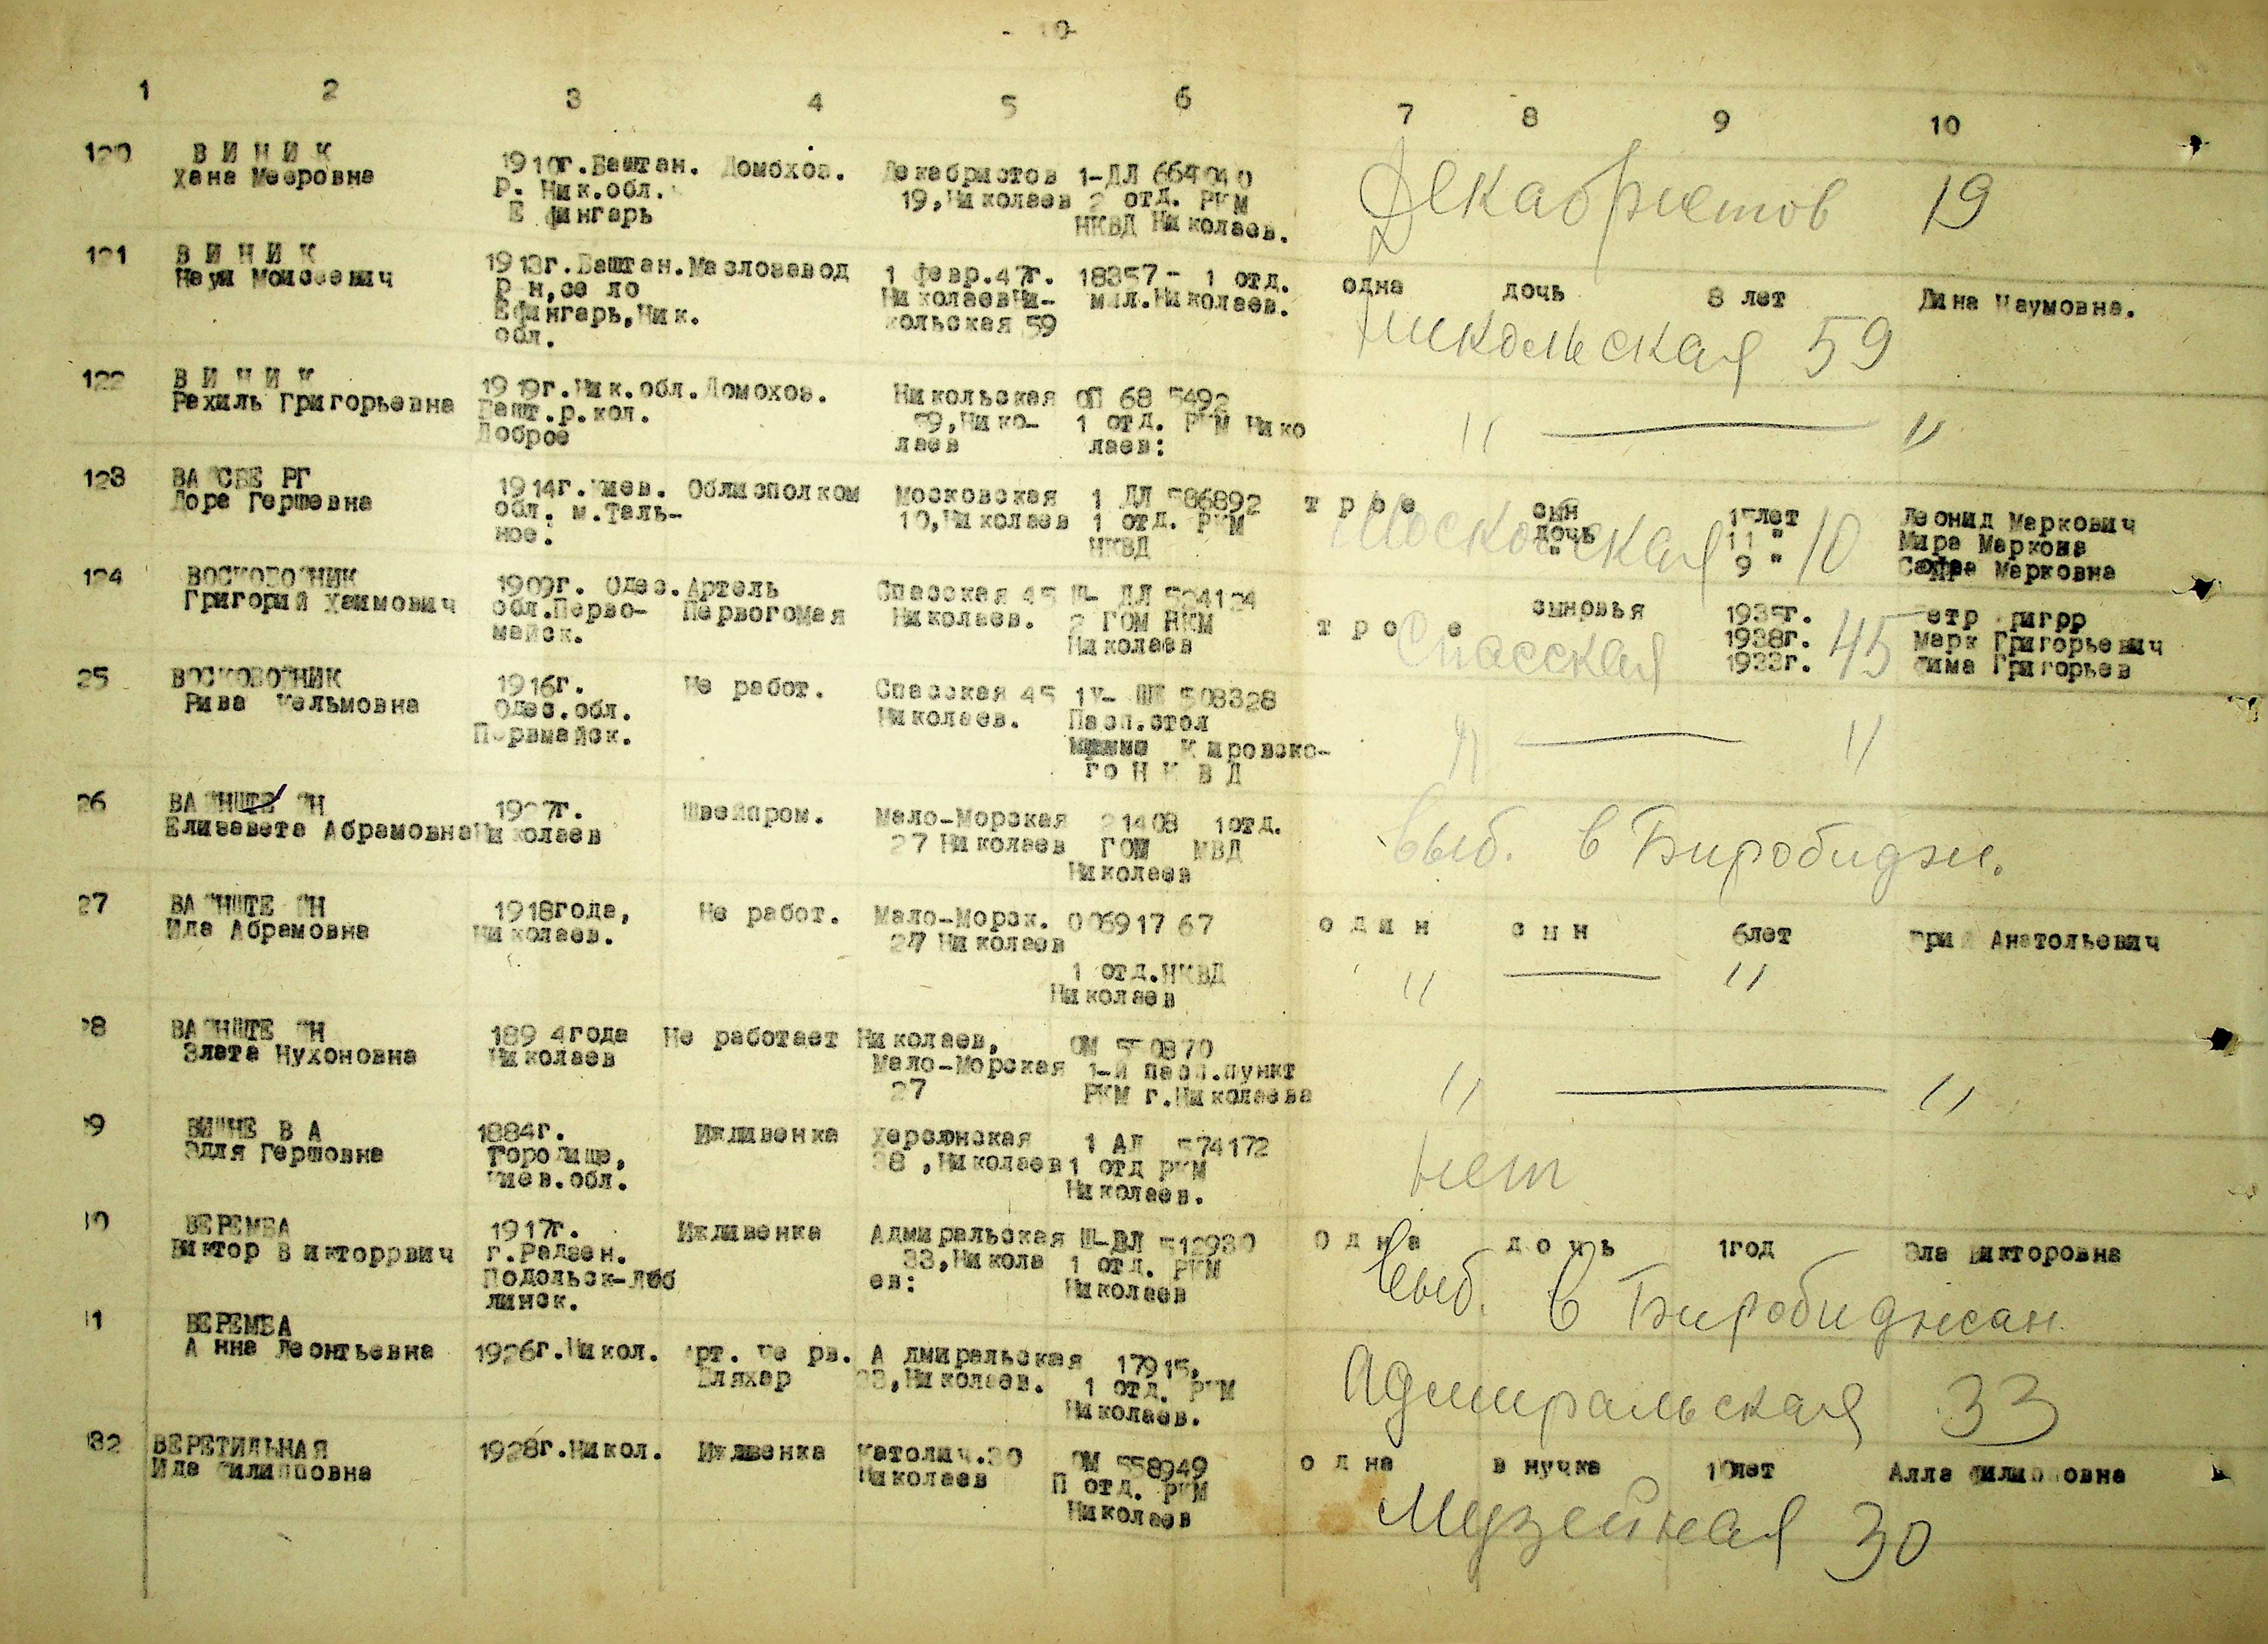 - 10-
1 2 3 4 5 6 7 8 9 10
120 ВИНИК 1910г.Баштан. Домохоз. Декабристов 1-ДЛ 664040
Хана Мееровна Р. Ник.обл. 19,Николаев 2 отд. РКМ
Е фингарь НКВД Николаев.
Декабристов 19
121 ВИНИК 1913г.Баштан. Маслозавод 1 февр.47г. 18357- 1 отд. одна дочь 8 лет Дина Наумовна.
Наум Моисеевич р-н,село Николаев Ни- мил.Николаев.
Ефингарь,Ник. кольская 59
обл.
Никольская 59
122 ВИНИК 1919г.Ник.обл. Домохоз. Никольская ОП 68 5492
Рахиль Григорьевна Башт.р.кол. 59,Нико- 1 отд. РКМ Нико
Доброе лаев лаев:
" — "
123 ВАЙСБЕРГ 1914г.Киев. Облисполком Московская 1 ДЛ 586892 трое сын 15лет Леонид Маркович
Дора Гершевна обл. м.Таль- 10,Николаев 1 отд. РКМ дочь 11 " Мира Маркона
ное. НКВД " 9 " Марковна
Московская 10
124 ВОСКОБОЙНИК 1909г. Одес. Артель Спасская 45 Ш- ДЛ 524124 трое сыновья 1935г. Петр Григрр
Григорий Хаимович обл.Перво- Первогомая Николаев. 2 ГОМ НКМ 1938г. Марк Григорьевич
майск. Николаев 1933г. Фима Григорьев
Спасская 45
25 ВОСКОБОЙНИК 1916г. Не работ. Спасская 45 1У- ШП 508328
Рива Кельмовна Одес.обл. Николаев. Пасп.стол
Первмайск. Кировско-
го НКВД
" — "
26 ВАЙНШТЕЙН 1927г. Швейпром. Мало-Морская 21408 1отд.
Елизавета Абрамовна Николаев 27 Николаев ГОМ МВД
Николаев
выб. в Биробиджн.
27 ВАЙНШТЕЙН 1918года, Не работ. Мало-Морск. 006917 67 один сын 6лет Анатольевич
Ида Абрамовна Николаев. 27 Николаев
1 отд.НКВД
Николаев
" — "
28 ВАЙНШТЕЙН 1894года Не работает Николаев, ОМ 550870
Злата Нухоновна Николаев Мало-Морская 1-й пасп.пункт
27 РКМ г.Николаева
" — "
29 1884г. Иждивенка Херсонская 1 АЛ 574172
Эдля Гершовна Городище, 38 ,Николаев 1 отд РКМ
Киев.обл. Николаев.
нет
30 ВЕРЕМБА 1917г. Иждивенка Адмиральская Ш-ВЛ 512930 Одна дочь 1год Эла Викторовна
Виктор Викторрвич г.Радзен. 33,Никола 1 отд. РКМ
Подольск-Люб ев: Николаев
линск.
выб. в Биробиджан.
31 ВЕРЕМБА
Анна Леонтьевна 1926г.Никол. Арт. Черв. Адмиральская 17915,
Бляхар 33,Николаев. 1 отд. РКМ
Николаев.
Адмиральская 33
132 ВЕРЕТИЛЬНАЯ 1928г.Никол. Иждивенка Католич.30 ОМ 558949 одна внучка 10лет Алла Филипповна
Ида Филипповна Николаев П отд. РКМ
Николаев
Музейная 30